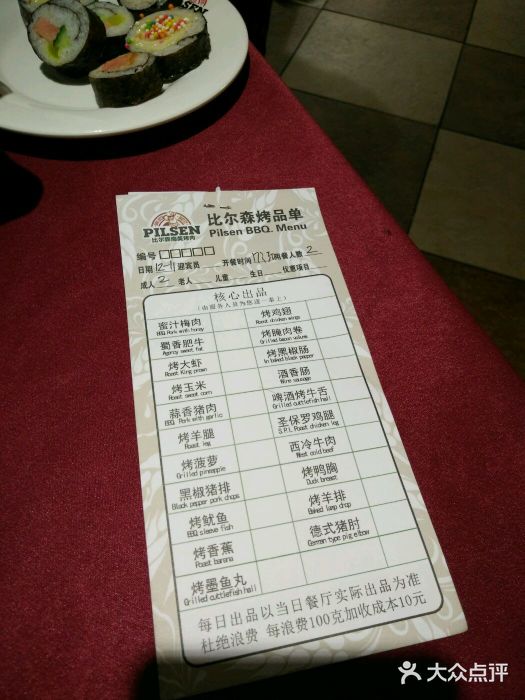 PILSEN
比尔森烤品单
Pilsen BBQ. Menu
编号
日期 12-11 迎宾员 开餐时间 用餐人数 2
成人 2 老人 儿童 生日 优惠项目
核心出品
(由服务人员为您逐一奉上)
蜜汁梅肉
BBQ Pork with honey
蜀香肥牛
Agency sweet fat
烤大虾
Roast King prawn
烤玉米
Roast sweet corn
蒜香猪肉
BBQ Pork with garlic
烤羊腿
Roast leg
烤菠萝
Grilled pineapple
黑椒猪排
Black pepper pork chops
烤鱿鱼
BBQ sleeve fish
烤香蕉
Roast banana
烤墨鱼丸
Grilled cuttlefish hail
烤鸡翅
Roast chicken wings
烤腌肉卷
Grilled bacon volume
烤黑椒肠
In baked black pepper
酒香肠
Wine sausage
啤酒烤牛舌
Grilled cuttlefish hail
圣保罗鸡腿
S.P.L Roast chicken leg
西冷牛肉
West cold beef
烤鸭胸
Duck breast
烤羊排
Baked lamp chop
德式猪肘
German type pig elbow
每日出品以当日餐厅实际出品为准
杜绝浪费 每浪费100克加收成本10元
大众点评